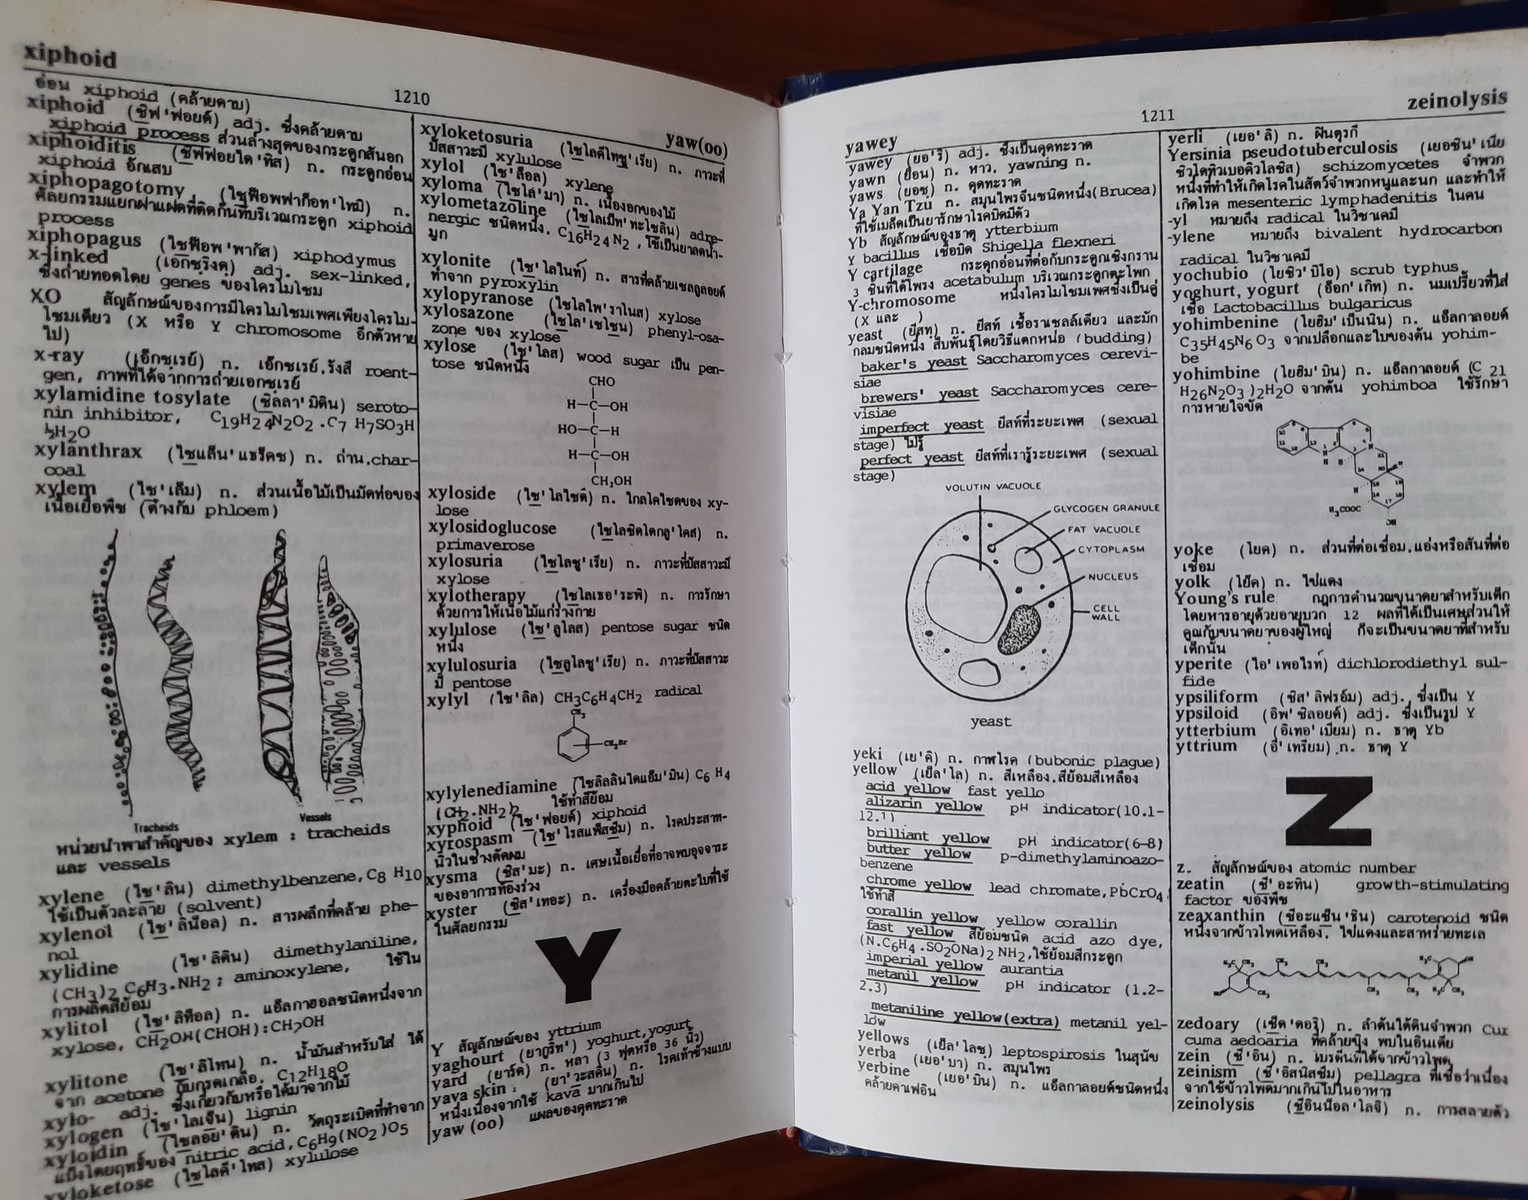 xiphoid
1210
yaw(oo)
อ่อน xiphoid (คล้ายดาบ)
xiphoid (ซิฟ'ฟอยด์) adj. ซึ่งคล้ายดาบ
xiphoid process ส่วนล่างสุดของกระดูกสันอก
xiphoiditis (ซิฟฟอยได'ทิส) n. กระดูกอ่อน
xiphoid อักเสบ
xiphopagotomy n.
ศัลยกรรมแยกฝาแฝดที่ติดกันที่บริเวณกระดูก xiphoid
process
xiphopagus (ไซฟ็อพ'พากัส) xiphodymus
x-linked adj. sex-linked,
ซึ่งถ่ายทอดโดย genes ของโครโมโซม
XO สัญลักษณ์ของการมีโครโมโซมเพศเพียงโครโม-
โซมเดียว (X หรือ Y chromosome อีกตัวหาย
ไป)
x-ray (เอ็กซเรย์) n. เอ็กซเรย์,รังสี roent-
gen, ภาพที่ได้จากการถ่ายเอกซเรย์
xylamidine tosylate (ซิลลา'มิดิน) seroto-
nin inhibitor, C19H24N2O2.C7 H7SO3H
½H2O
xylanthrax (ไซแล็น'แธร็คซ) n. ถ่าน,char-
coal
xylem (ไซ'เล็ม) n. ส่วนเนื้อไม้เป็นมัดท่อของ
เนื้อเยื่อพืช (ต่างกับ phloem)
Tracheids
Vessels
หน่วยนำพาสำคัญของ xylem : tracheids
และ vessels
xylene (ไซ'ลีน) dimethylbenzene,C8 H10
ใช้เป็นตัวละลาย (solvent)
xylenol (ไซ'ลีน็อล) n. สารผลึกที่คล้าย phe-
nol
xylidine (ไซ'ลิดีน) dimethylaniline,
(CH3)2 C6H3.NH2; aminoxylene, ใช้ใน
การผลิตสีย้อม
xylitol (ไซ'ลิท็อล) n. แอ็ลกาฮอลชนิดหนึ่งจาก
xylose, CH2OH(CHOH)3CH2OH
xylitone (ไซ'ลิโทน) n. น้ำมันสำหรับใส่ ได้
จาก acetone กับกรดเกลือ, C12H18O
xylo- adj. ซึ่งเกี่ยวกับหรือได้มาจากไม้
xylogen (ไซ'โลเจ็น) lignin
xyloidin (ไซลอย'ดิน) n. วัตถุระเบิดที่ทำจาก
แป้งโดยฤทธิ์ของ nitric acid,C6H9(NO2)O5
xyloketose (ไซโลคี'โทส) xylulose
xyloketosuria n. ภาวะที่
ปัสสาวะมี xylulose
xylol (ไซ'ล็อล) xylene
xyloma (ไซโล'มา) n. เนื้องอกของไม้
xylometazoline (ไซโลเม็ท'ทะโซลีน) adre-
nergic ชนิดหนึ่ง, C16H24 N2 , ใช้เป็นยาลดน้ำ-
มูก
xylonite (ไซ'โลไนท์) n. สารที่คล้ายเซลลูลอยด์
ทำจาก pyroxylin
xylopyranose (ไซโลไพ'ราโนส) xylose
xylosazone (ไซโล'เซโซน) phenyl-osa-
zone ของ xylose
xylose (ไซ'โลส) wood sugar เป็น pen-
tose ชนิดหนึ่ง
CHO
H—C—OH
HO—C—H
H—C—OH
CH2OH
xyloside (ไซ'โลไซด์) n. ไกลโคไซดของ xy-
lose
xylosidoglucose (ไซโลซิดโดกลู'โคส) n.
primaverose
xylosuria (ไซโลซู'เรีย) n. ภาวะที่ปัสสาวะมี
xylose
xylotherapy (ไซโลเธอ'ระพี) n. การรักษา
ด้วยการให้เนื้อไม้แก่ร่างกาย
xylulose (ไซ'ลูโลส) pentose sugar ชนิด
หนึ่ง
xylulosuria (ไซลูโลซู'เรีย) n. ภาวะที่ปัสสาวะ
มี pentose
xylyl (ไซ'ลิล) CH3C6H4CH2 radical
CH3
CH2Br
xylylenediamine (ไซลิลลีนไดแอ็ม'มีน) C6 H4
(CH2.NH2)2 ใช้ทำสีย้อม
xyphoid (ไซ'ฟอยด์) xiphoid
xyrospasm (ไซ'โรสแพ็สซึม) n. โรคประสาท-
นิ้วในช่างตัดผม
xysma (ซิส'มะ) n. เศษเนื้อเยื่อที่อาจพบอุจจาระ
ของอาการท้องร่วง
xyster (ซิส'เทอะ) n. เครื่องมือคล้ายตะไบที่ใช้
ในศัลยกรรม
Y
Y สัญลักษณ์ของ yttrium
yaghourt (ยากูร์ท') yoghurt,yogurt
yard (ยาร์ด) n. หลา (3 ฟุตหรือ 36 นิ้ว)
yava skin, (ยา'วะสคิน) n. โรคเท้าช้างแบบ
หนึ่งเนื่องจากใช้ kava มากเกินไป
yaw (oo) แผลของคุดทะราด
yawey
1211
zeinolysis
yawey (ยอ'รี) adj. ซึ่งเป็นคุดทะราด
yawn (ย็อน) n. หาว, yawning n.
yaws (ยอซ) n. คุดทะราด
Ya Yan Tzu n. สมุนไพรจีนชนิดหนึ่ง(Brucea)
ที่ใช้เมล็ดเป็นยารักษาโรคบิดมีตัว
Yb สัญลักษณ์ของธาตุ ytterbium
Y bacillus เชื้อบิด Shigella flexneri
Y cartilage กระดูกอ่อนที่ต่อกับกระดูกเชิงกราน
3 ชิ้นที่ใต้โพรง acetabulum บริเวณกระดูกตะโพก
Y-chromosome หนึ่งโครโมโซมเพศซึ่งเป็นคู่
(X และ )
yeast (ยีสท) n. ยีสท์ เชื้อราเซลล์เดียว และมัก
กลมชนิดหนึ่ง สืบพันธุ์โดยวิธีแตกหน่อ (budding)
baker's yeast Saccharomyces cerevi-
siae
brewers' yeast Saccharomyces cere-
visiae
imperfect yeast ยีสท์ที่ระยะเพศ (sexual
stage) ไม่รู้
perfect yeast ยีสท์ที่เรารู้ระยะเพศ (sexual
stage)
VOLUTIN VACUOLE
GLYCOGEN GRANULE
FAT VACUOLE
CYTOPLASM
NUCLEUS
CELL
WALL
yeast
yeki (เย'คิ) n. กาฬโรค (bubonic plague)
yellow (เย็ล'โล) n. สีเหลือง,สีย้อมสีเหลือง
acid yellow fast yello
alizarin yellow pH indicator(10.1-
12.1)
brilliant yellow pH indicator(6-8)
butter yellow p-dimethylaminoazo-
benzene
chrome yellow lead chromate,PbCrO4
ใช้ทำสี
corallin yellow yellow corallin
fast yellow สีย้อมชนิด acid azo dye,
(N.C6H4.SO2ONa)2 NH2,ใช้ย้อมสีกระดูก
imperial yellow aurantia
metanil yellow pH indicator (1.2-
2.3)
metaniline yellow(extra) metanil yel-
low
yellows (เย็ล'โลซ) leptospirosis ในสุนัข
yerba (เยอ'บา) n. สมุนไพร
yerbine (เยอ'บีน) n. แอ็ลกาลอยด์ชนิดหนึ่ง
คล้ายคาเฟอีน
yerli (เยอ'ลิ) n. ฝิ่นตุรกี
Yersinia pseudotuberculosis (เยอซิน'เนีย
ซิวโดทิวเบอคิวโลซิส) schizomycetes จำพวก
หนึ่งที่ทำให้เกิดโรคในสัตว์จำพวกหนูและนก และทำให้
เกิดโรค mesenteric lymphadenitis ในคน
-yl หมายถึง radical ในวิชาเคมี
-ylene หมายถึง bivalent hydrocarbon
radical ในวิชาเคมี
yochubio (โยชิว'บิโอ) scrub typhus
yoghurt, yogurt (อ็อก'เกิท) n. นมเปรี้ยวที่ใส่
เชื้อ Lactobacillus bulgaricus
yohimbenine (โยฮิม'เบ็นนีน) n. แอ็ลกาลอยด์
C35H45N6O3 จากเปลือกและใบของต้น yohim-
be
yohimbine (โยฮิม'บีน) n. แอ็ลกาลอยด์ (C 21
H26N2O3 )2H2O จากต้น yohimboa ใช้รักษา
การหายใจขัด
H3COOC
OH
yoke (โยค) n. ส่วนที่ต่อเชื่อม,แอ่งหรือสันที่ต่อ
เชื่อม
yolk (โย็ค) n. ไข่แดง
Young's rule กฎการคำนวณขนาดยาสำหรับเด็ก
โดยหารอายุด้วยอายุบวก 12 ผลที่ได้เป็นเศษส่วนให้
คูณกับขนาดยาของผู้ใหญ่ ก็จะเป็นขนาดยาที่สำหรับ
เด็กนั้น
yperite (ไอ'เพอไรท์) dichlorodiethyl sul-
fide
ypsiliform (ซิส'ลิฟรอัม) adj. ซึ่งเป็น Y
ypsiloid (อิพ'ซิลอยด์) adj. ซึ่งเป็นรูป Y
ytterbium (อิเทอ'เบียม) n. ธาตุ Yb
yttrium (อี'เทรียม) n. ธาตุ Y
Z
z. สัญลักษณ์ของ atomic number
zeatin (ซี'อะทิน) growth-stimulating
factor ของพืช
zeaxanthin (ซีอะแซ็น'ธิน) carotenoid ชนิด
หนึ่งจากข้าวโพดเหลือง, ไข่แดงและสาหร่ายทะเล
zedoary (เซ็ด'ดอรี) n. ลำต้นใต้ดินจำพวก Cur
cuma aedoaria ที่คล้ายขิง พบในอินเดีย
zein (ซี'อิน) n. โบรตีนที่ได้จากข้าวโพด
zeinism (ซี'อิสนิสซึม) pellagra ที่เชื่อว่าเนื่อง
จากใช้ข้าวโพดมากเกินไปในอาหาร
zeinolysis (ซีอินน็อล'ไลซิ) n. การสลายตัว